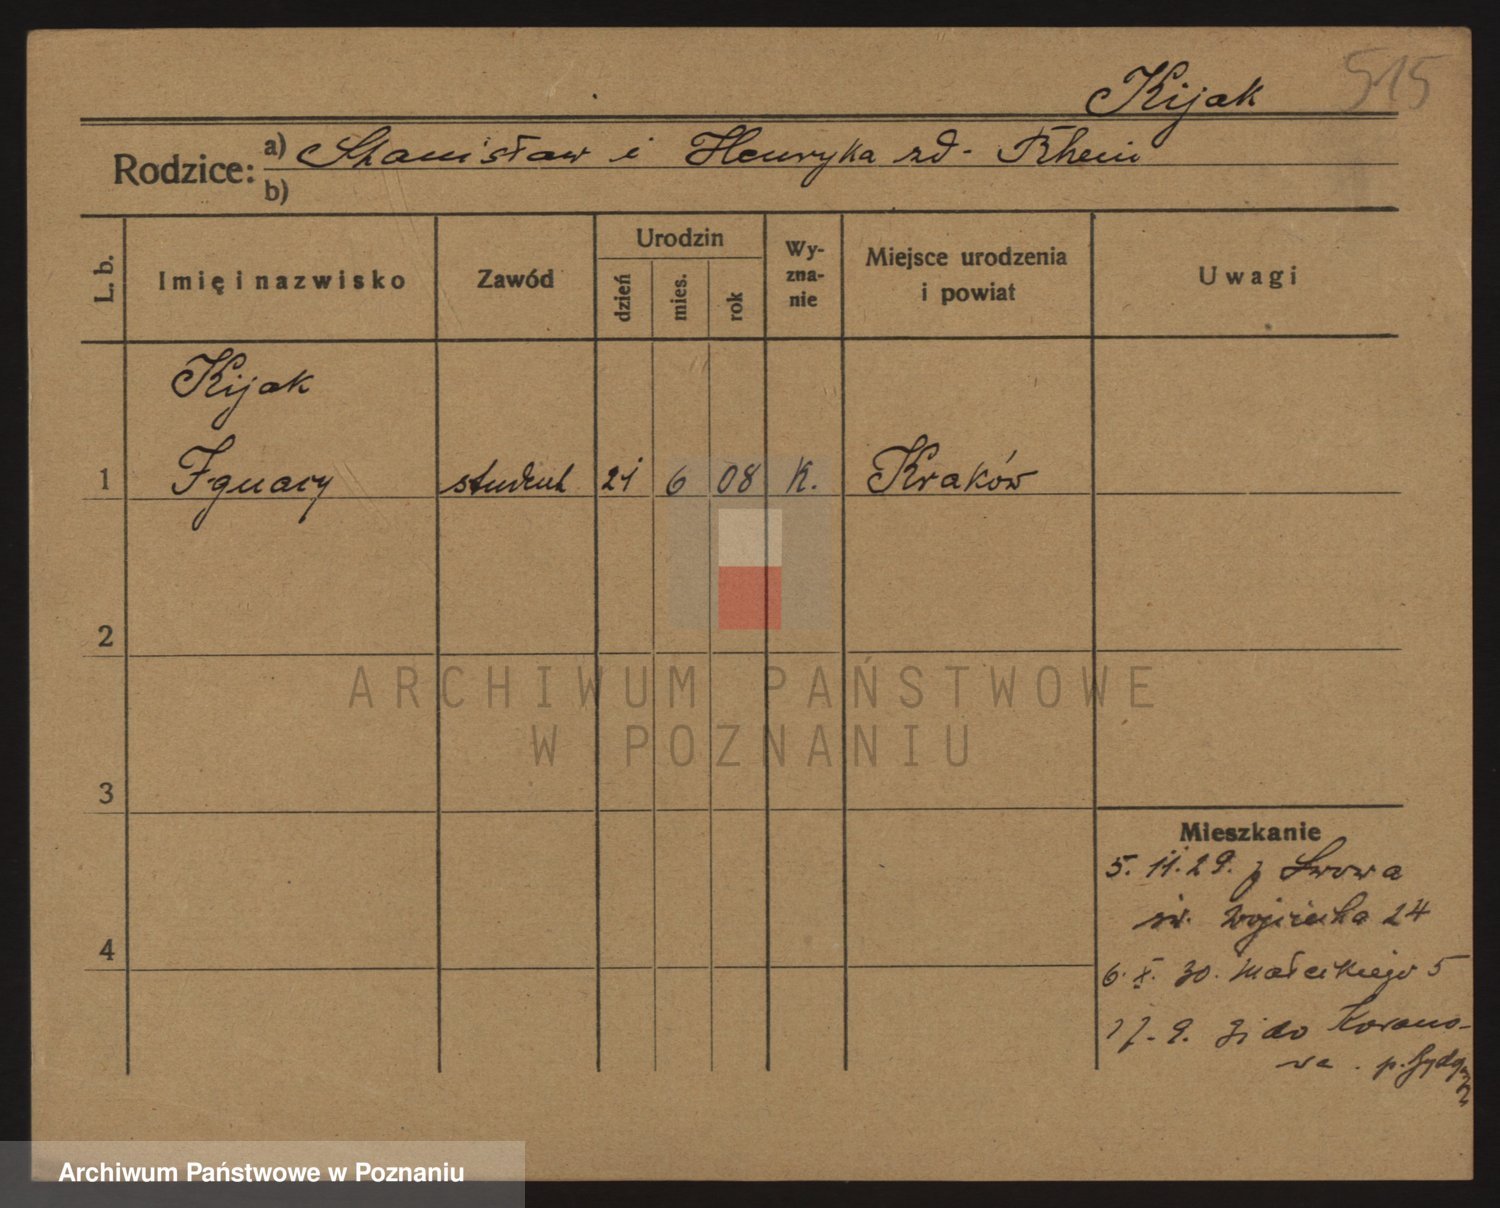 Kijak
515
Rodzice:
a) Stanisław i Henryka zd. Rhein
b)
L. b.
Imię i nazwisko
Zawód
Urodzin
dzień
mies.
rok
Wy-
zna-
nie
Miejsce urodzenia
i powiat
Uwagi
Kijak
1 Ignacy student 21 6 08 K. Kraków
2
3
4
ARCHIWUM PAŃSTWOWE
W POZNANIU
Mieszkanie
5. 11. 29. z Lwowa
św. Wojciecha 24
6. X. 30. Małeckiego 5
17. 9. 31 do Korono-
wa. p. Bydg
Archiwum Państwowe w Poznaniu